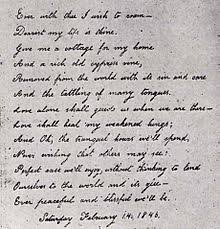 Ever with thee I wish to roam —
Dearest my life is thine.
Give me a cottage for my home
And a rich old cypress vine,
Removed from the world with its sin and care
And the tattling of many tongues.
Love alone shall guide us when we are there —
Love shall heal my weakened lungs;
And Oh, the tranquil hours we'll spend,
Never wishing that others may see!
Perfect ease we'll enjoy, without thinking to lend
Ourselves to the world and its glee —
Ever peaceful and blissful we'll be.
Saturday February 14, 1846.